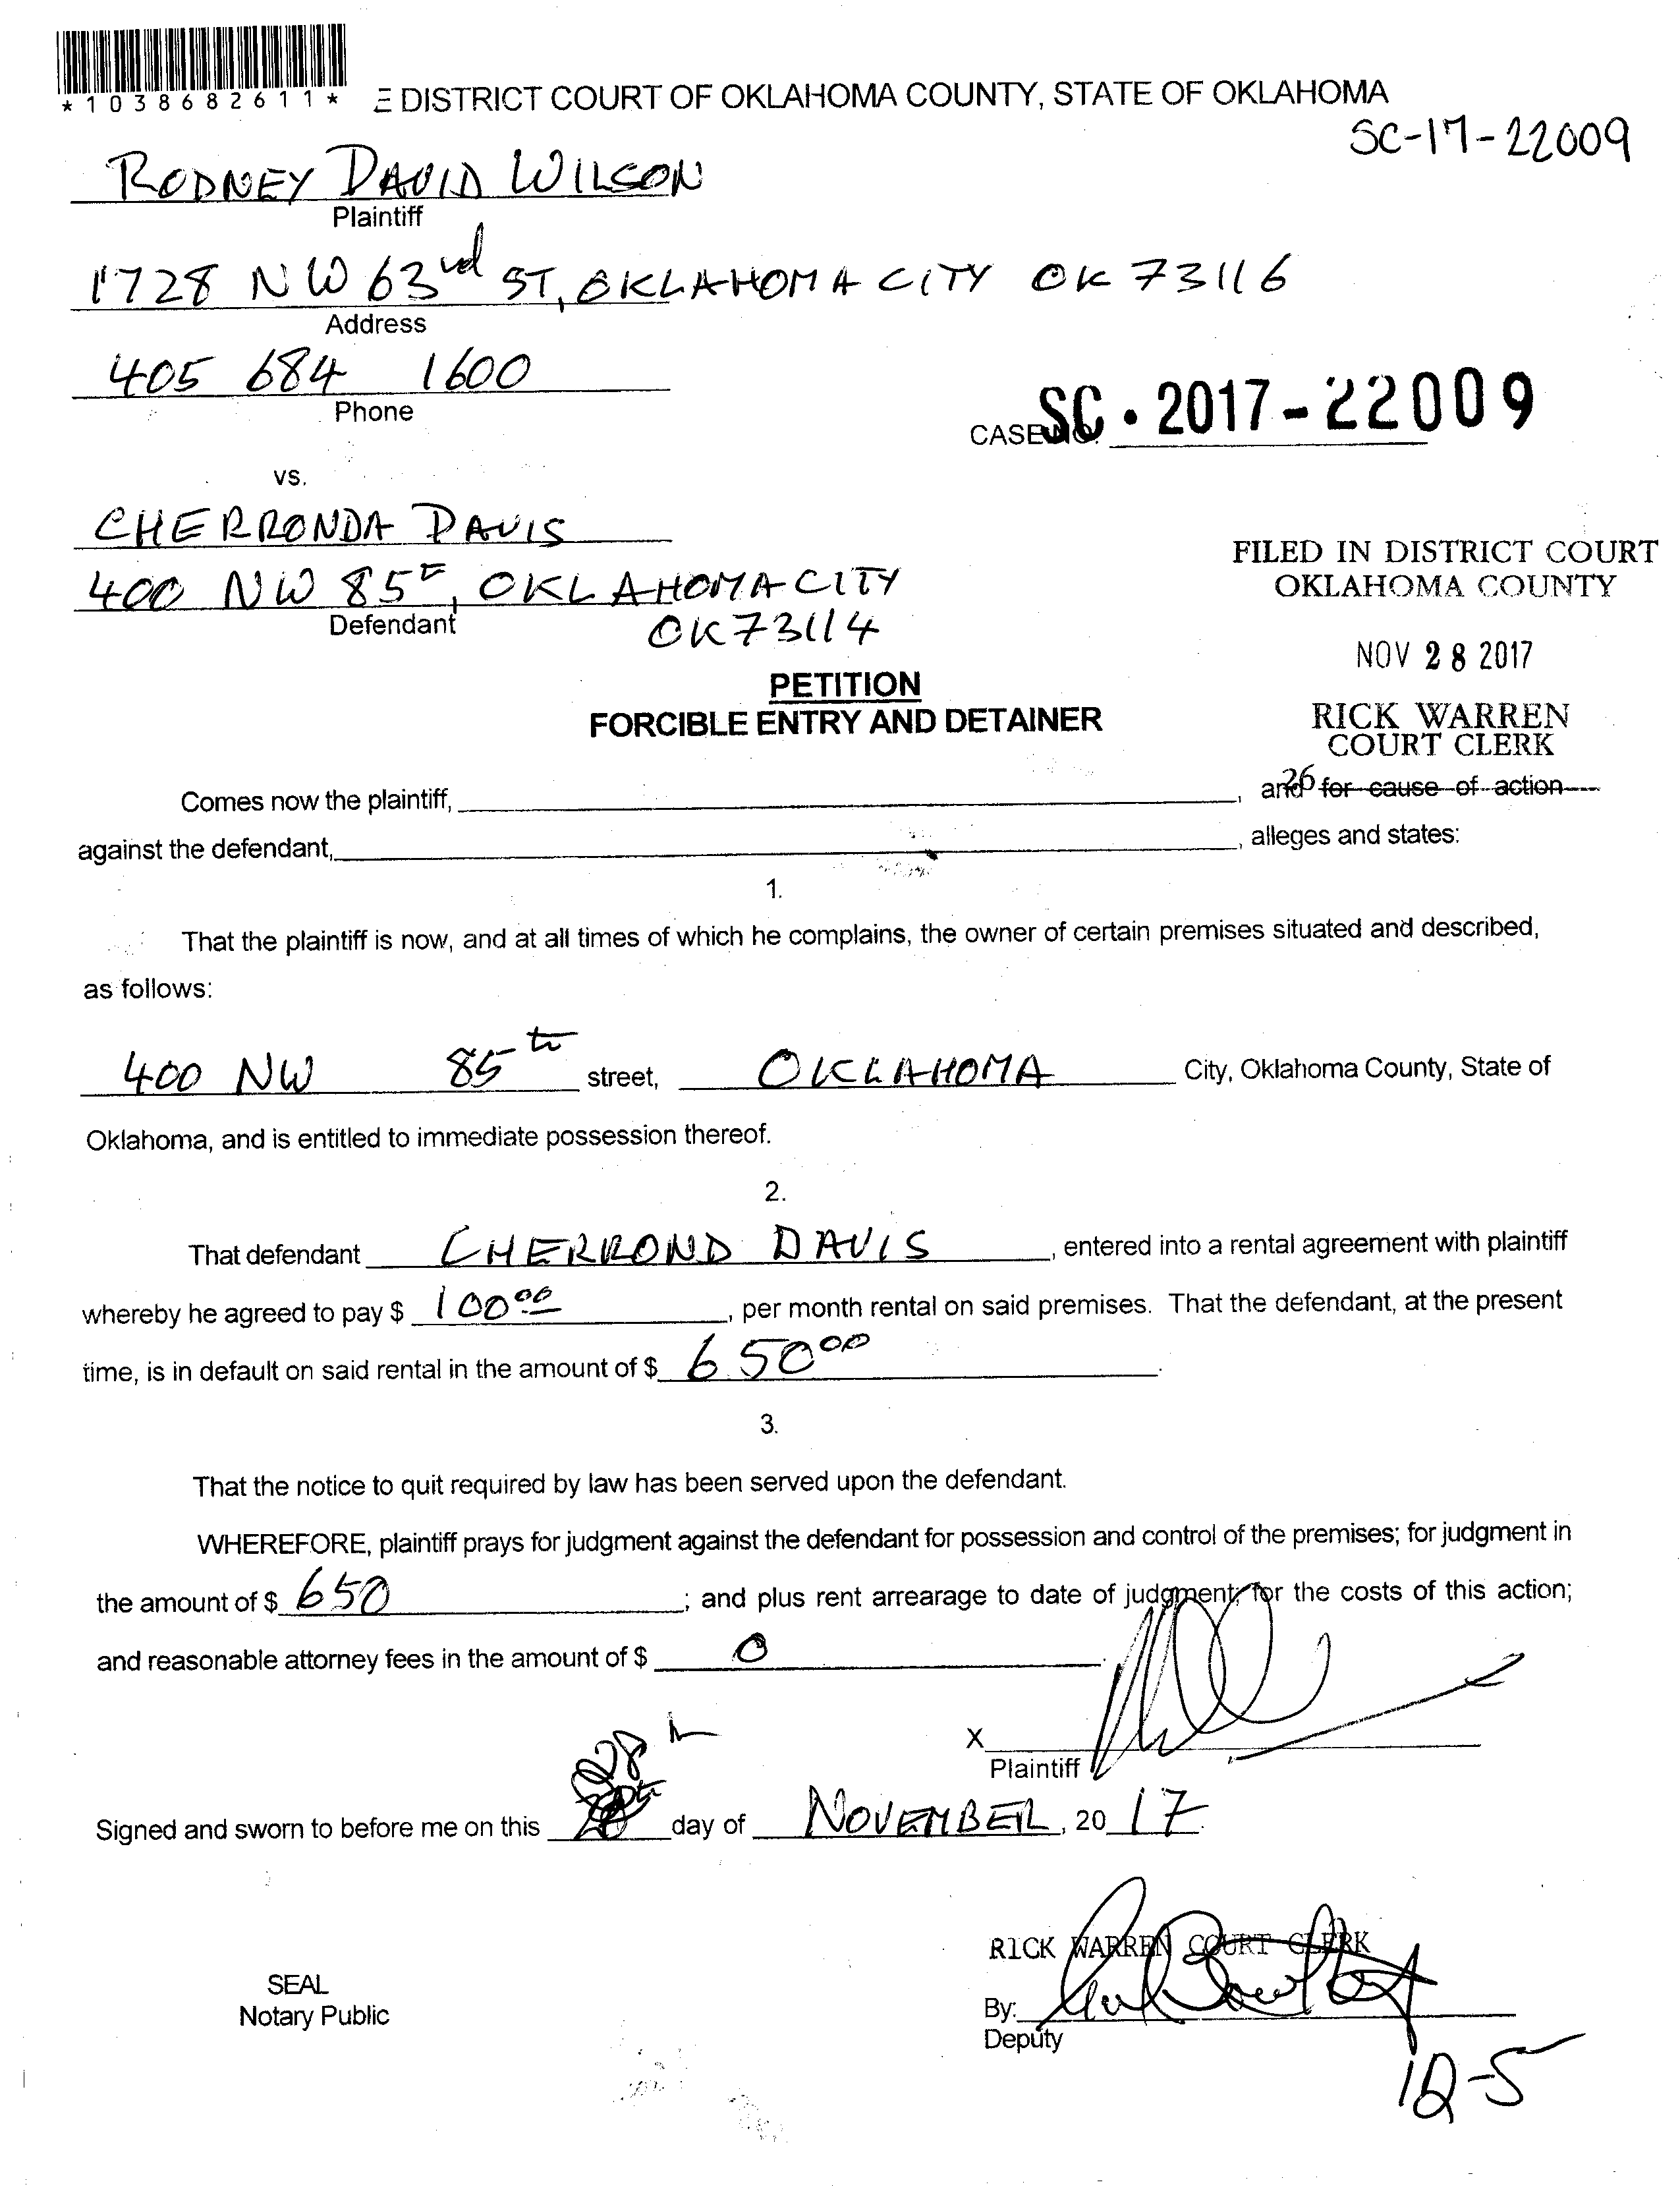 *1038682611*
E DISTRICT COURT OF OKLAHOMA COUNTY, STATE OF OKLAHOMA
SC-17-22009
RODNEY DAVID WILSON
Plaintiff
1728 NW 63rd ST, OKLAHOMA CITY OK 73116
Address
405 684 1600
Phone
CASE NO. SC • 2017-22009
vs.
CHERRONDA DAVIS
400 NW 85th, OKLAHOMA CITY
OK 73114
Defendant
FILED IN DISTRICT COURT
OKLAHOMA COUNTY
NOV 28 2017
RICK WARREN
COURT CLERK
26
PETITION
FORCIBLE ENTRY AND DETAINER
Comes now the plaintiff, , and for cause of action
against the defendant, , alleges and states:
1.
That the plaintiff is now, and at all times of which he complains, the owner of certain premises situated and described,
as follows:
400 NW 85th street, OKLAHOMA City, Oklahoma County, State of
Oklahoma, and is entitled to immediate possession thereof.
2.
That defendant CHERROND DAVIS, entered into a rental agreement with plaintiff
whereby he agreed to pay $ 100 00, per month rental on said premises. That the defendant, at the present
time, is in default on said rental in the amount of $ 650 00.
3.
That the notice to quit required by law has been served upon the defendant.
WHEREFORE, plaintiff prays for judgment against the defendant for possession and control of the premises; for judgment in
the amount of $ 650 ; and plus rent arrearage to date of judgment; for the costs of this action;
and reasonable attorney fees in the amount of $ 0.
X
Plaintiff
Signed and sworn to before me on this 28th day of NOVEMBER, 20 17.
RICK WARREN COURT CLERK
SEAL
Notary Public
By:
Deputy
12-5